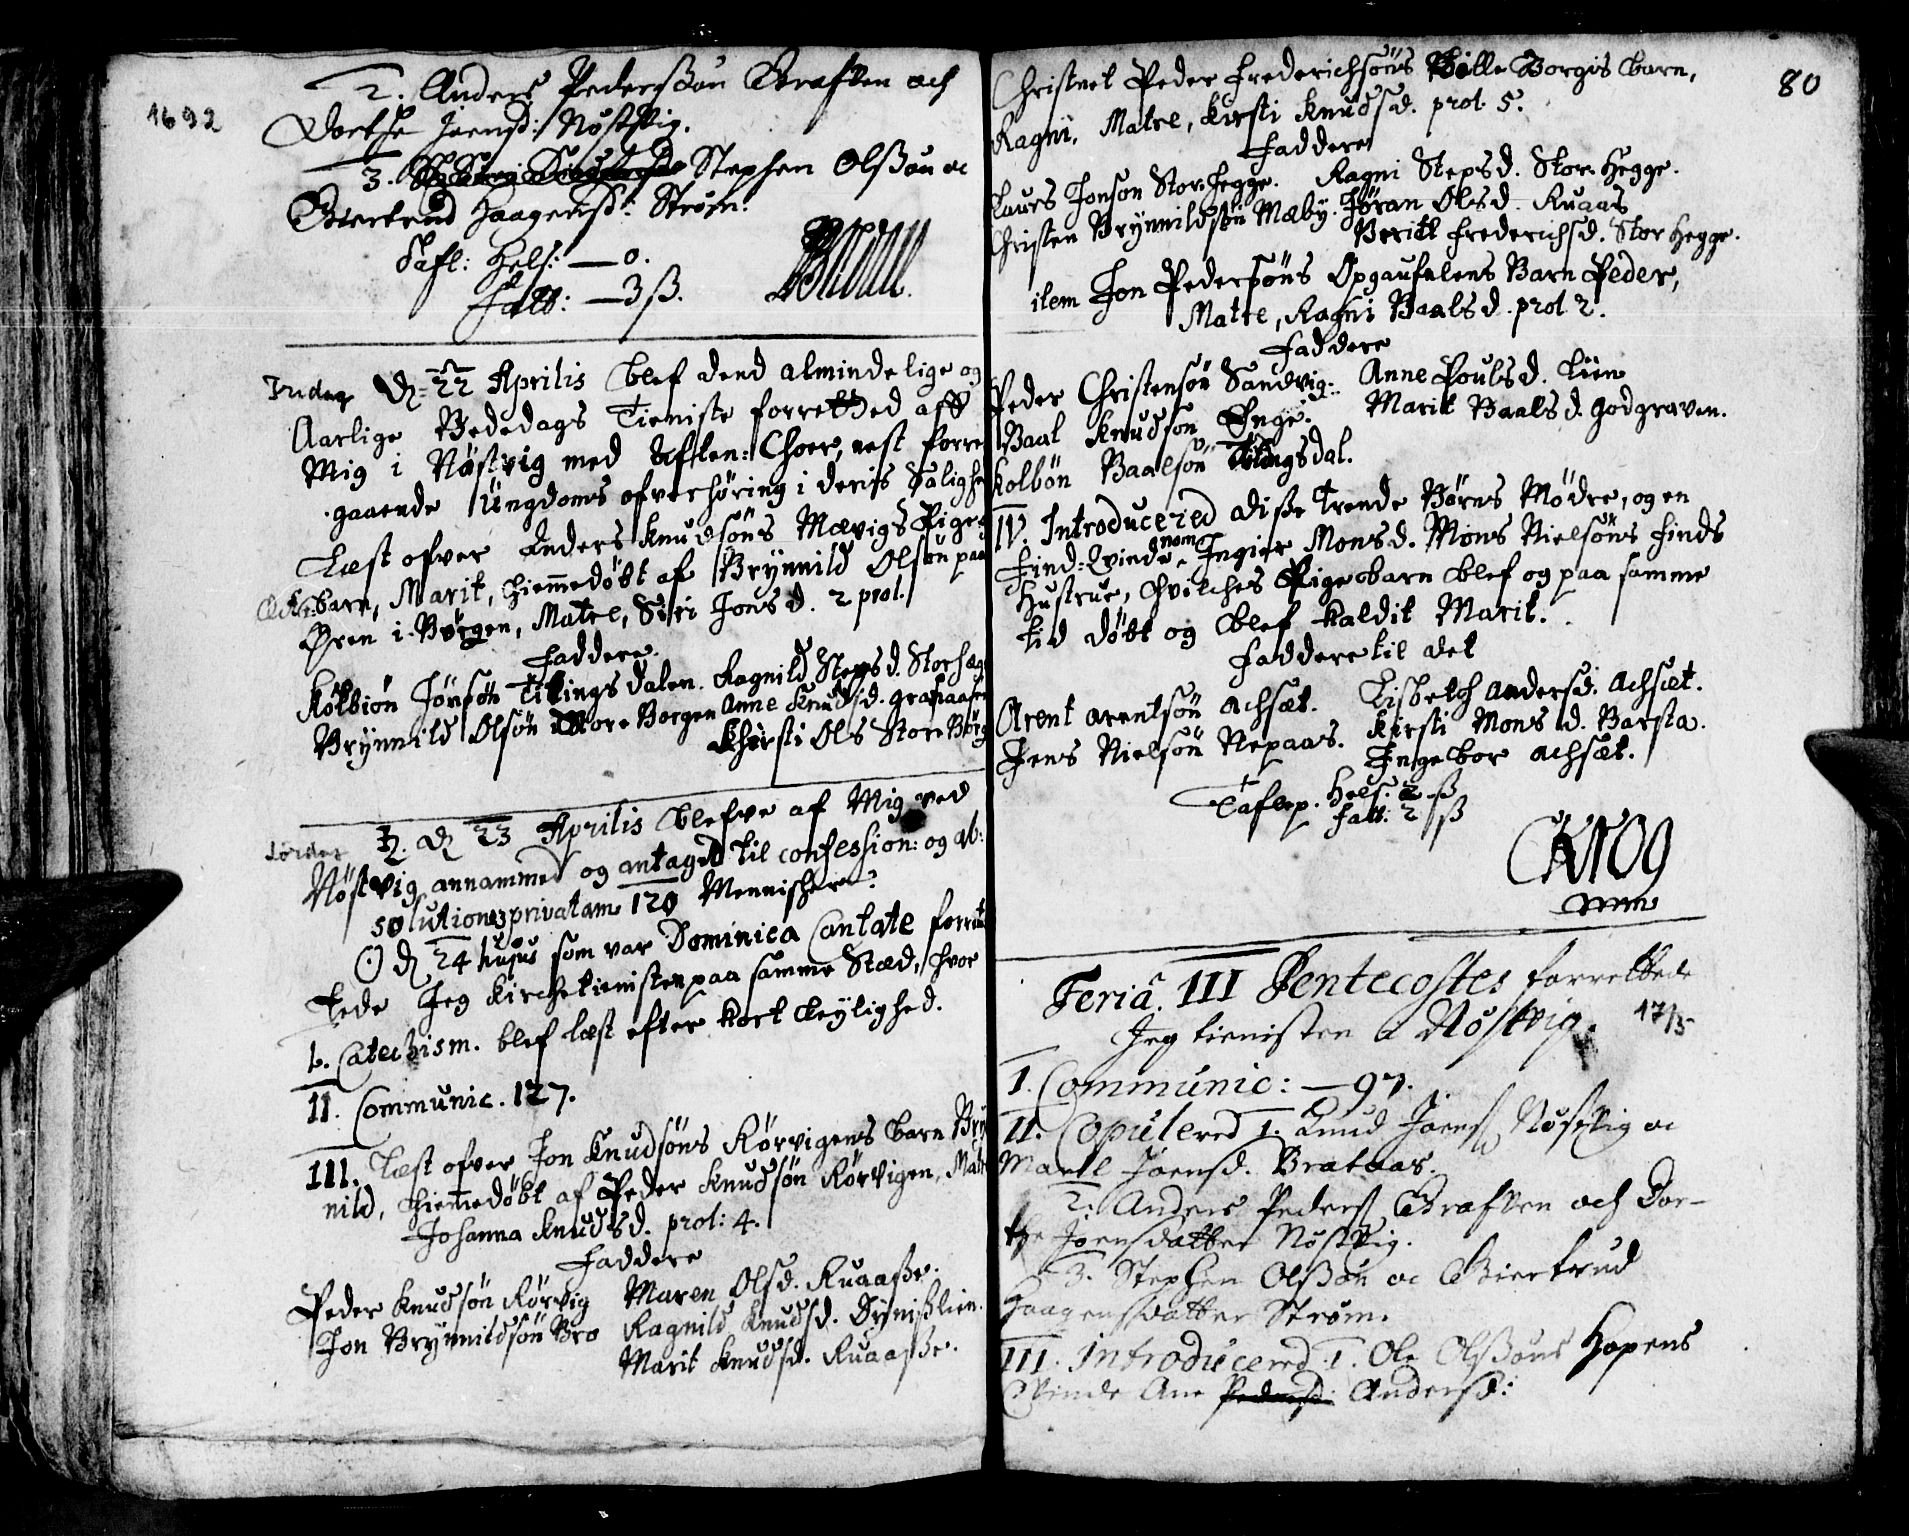 1692
2. Anders Pederßøn Graffen och
Dorthe Joensd: Nøstvig.
3. Stephen Olßøn oc
Giertrud Haagensd: Strøm.
Tafl: Hels: — 0.
Fatt: — 3 ß.
Fredag D. 22 Aprilis blef dend almindelige og
Aarlige Bededags Tieniste forretted aff
Mig i Nøstvig med Afften: Choer, nest forre
gaaende Ungdoms ofverhøring i deris Saligh
Læst ofver Anders Knudsøns Mævigs Pige
barn, Marit, hiemmedøbt af Brynnild Olsøn paa
Øren i Borgen, Matre, Siri Jonsd. 2 prol.
Faddere.
Kolbiøn Jonsøn Tillingsdalen. Ragnild Stepsd. Storheg
Brynnild Olsøn Store Borgen Anne Knudsd.
Khirsti Ols Store Borg
Lørdag ♄. D 23 Aprilis blefve af Mig ved
Nøstvig annammed og antaged til confession: og ab:
solutionem privatam 120 Mennisker.
☉ D 24 hujus som var Dominica Cantate forret
tede Jeg Kirchetienisten paa samme Stæd, hvor
I. Catechism. blef læst efter kort leylighed.
II. Communic. 127.
III. Læst ofver Jon Knudsøns Rørvigens barn Bryn
nild, hiemedøbt af Peder Knudsøn Rørvigen, Matre
Johanna Knudsd. prol: 4.
Faddere
Peder Knudsøn Rørvig Maren Olsd. Ruaaße.
Jon Brynnildsøn Bro Ragnild Knudsd.
Marit Knudsd. Ruaaße.
80
Christnet Peder Frederichsøns Lille Borgis barn,
Ragni, Matre, Kirsti Knudsd. prol. 5.
Faddere
Laurs Jonsøn Stor Hegge. Ragni Stepsd. Stor Hegge.
Christen Brynnildsøn Mæby. Jøran Olsd. Ruaas
Berit Frederichsd. Stor Hegge.
item Jon Pedersøns Opgaufalens Barn Peder,
Matre, Ragni Baalsd. prol 2.
Faddere
Peder Christensøn Sandvig. Anne Poulsd. Lien
Baal Knudsøn Enge. Marit Baalsd. Godgraven.
Kolbøn Baalsøn Tillingsdal.
IV. Introducered diße trende Børns Mødre, og en
Find-Qvinde nom. Ingier Monsd. Mons Nielsøns Finds
Hustrue, hvilches Pigebarn blef og paa samme
tid døbt og blef kaldit Marit.
Faddere til det
Arent Arentsøn Achsæt. Lisbeth Andersd. Achsæt.
Jens Nielsøn Nepaas. Kirsti Monsd. Barsta.
Ingebor Achsæt.
Taflep. Hels. 2 ß
Fatt: 2 ß
CKrog
mm
Feriâ III Pentecostes forrettede
Jeg tienisten i Nøstvig. 17/5
I. Communic: — 97.
II. Copulered 1. Knud Joens Nøstvig oc
Marte Joensd. Brataas.
2. Anders Peders Graffven och Dor-
the Joensdatter Nøstvig.
3. Stephen Olßøn oc Giertrud
Haagensdatter Strøm.
III. Introducered 1. Ole Olßøns Hopens
Qvinde Ane Pedersd: Andersd: